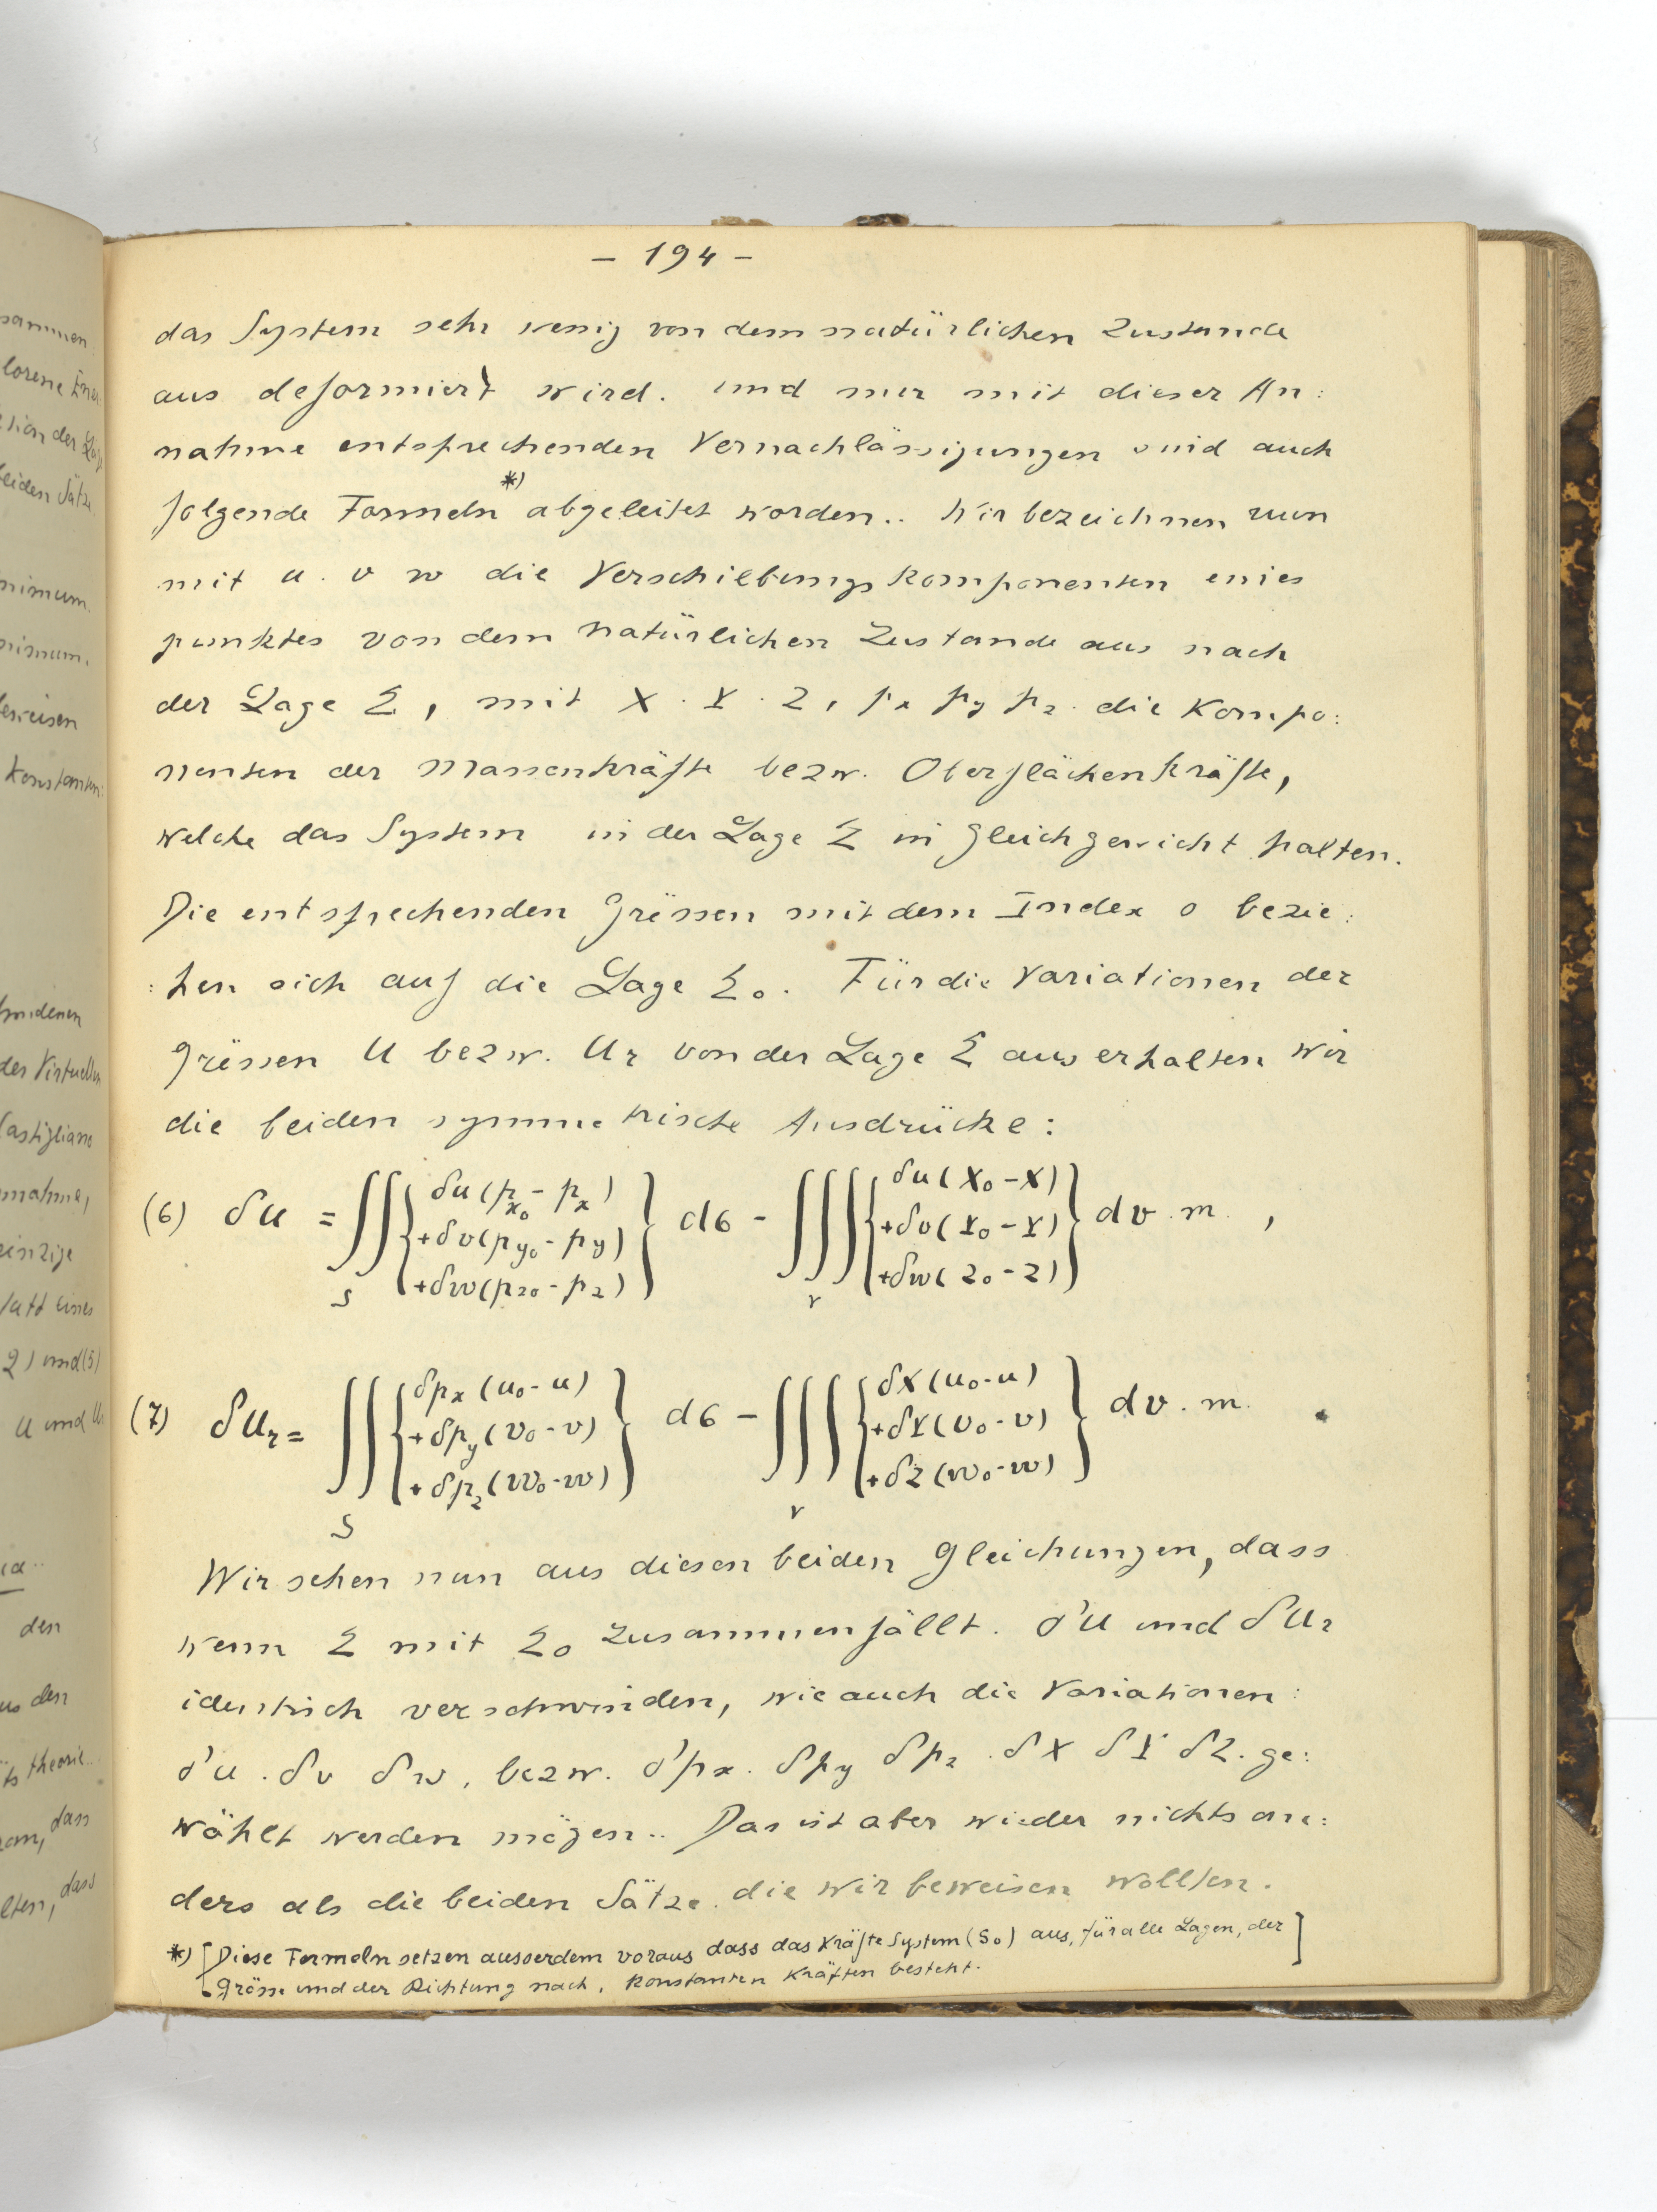 - 194 -
das System sehr wenig von dem natürlichen Zustande
aus deformiert wird. und nur mit dieser An:
nahme entsprechenden Vernachlässigungen sind auch
folgende Formeln *) abgeleitet worden.. Wir bezeichnen nun
mit u . v w die Verschiebungskomponenten eines
punktes von dem natürlichen Zustande aus nach
der Lage Σ, mit X . Y . Z, px py pz . die Kompo:
nenten der Massenkräfte bezw. Oberflächenkräfte,
welche das System in der Lage Σ in gleichgewicht halten.
Die entsprechenden Grössen mit dem Index o bezie:
:hen sich auf die Lage Σ₀. Für die Variationen der
Grössen U bezw. Ur von der Lage Σ aus erhalten wir
die beiden symmetrische Ausdrücke:
(6) δU = ∫∫ { δu(px₀ - px) +δv(py₀ - py) +δw(pz₀ - pz) } dσ - ∫∫∫ { δu(X₀ - X) +δv(Y₀ - Y) +δw(Z₀ - Z) } dv . m . ,
S V
(7) δUr = ∫∫ { δpx(u₀ - u) +δpy(v₀ - v) +δpz(w₀ - w) } dσ - ∫∫∫ { δX(u₀ - u) +δY(v₀ - v) +δZ(w₀ - w) } dv . m. .
S V
Wir sehen nun aus diesen beiden gleichungen, dass
wenn Σ mit Σ₀ zusammenfällt. δU und δUr
identisch verschwinden, wie auch die Variationen:
δu . δv δw, bezw. δpx . δpy δpz . δX δY δZ . ge:
wählt werden mögen.. Das ist aber wieder nichts an:
ders als die beiden Sätze. die wir beweisen wollten.
*) [Diese Formeln setzen ausserdem voraus dass das Kräfte System (S₀) aus, für alle Lagen, der]
Grösse und der Richtung nach, konstanten Kräften besteht.
sammen:
lorene Ener
tion der Lag
beiden Sätze
nimum.
nimum.
beweisen
konstanten
des Virtuellen
Castigliano
nnahme,
einzige
statt eines
2) und (5)
U und Ur
den
us den
theorie..
dass
lten, dass